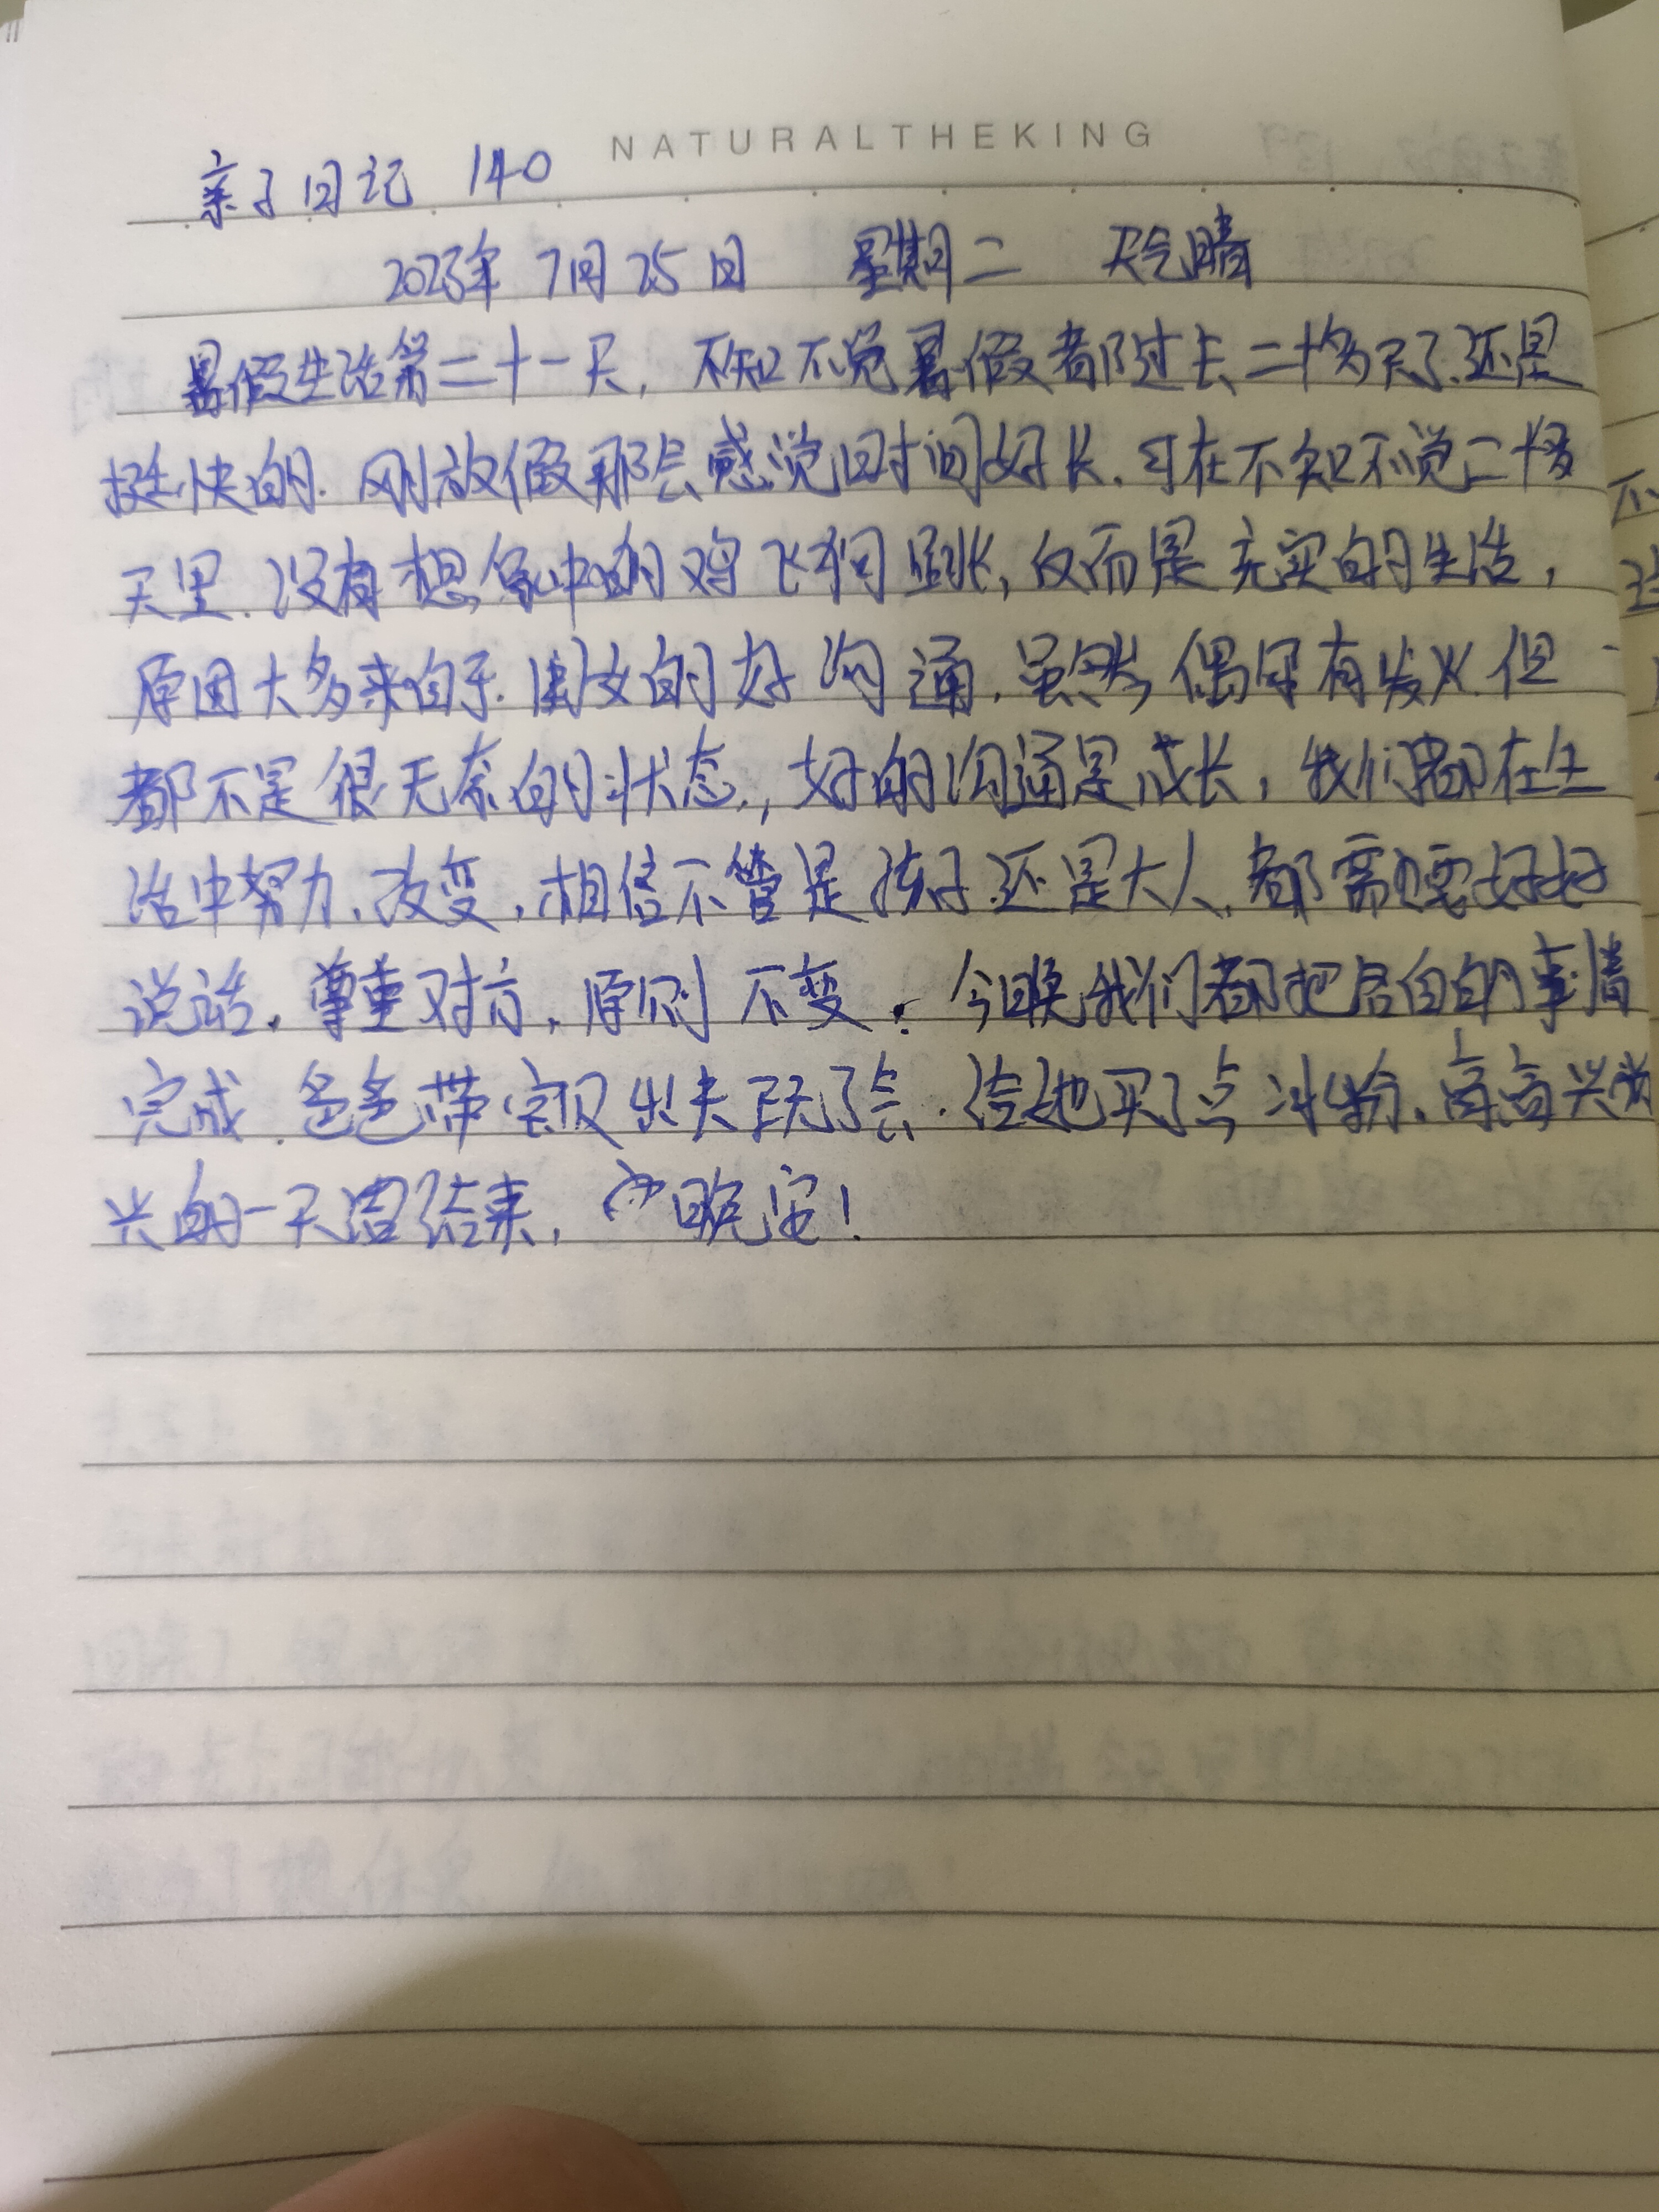 NATURALTHEKING
亲子日记 140
2023年 7月25日 星期二 天气晴
暑假生活第二十一天，不知不觉暑假都过去二十多天了.还是
挺快的.刚放假那会感觉时间好长.可在不知不觉二十多
天里.没有想象中的鸡飞狗跳，反而是充实的生活，
原因大多来自于.的好沟通.虽然偶尔有发火.但
都不是很无奈的状态.，好的沟通是成长，我们都在生
活中努力、改变，相信不管是孩子还是大人.都需要好好
说话.尊重对方.原则不变.今晚我们都把各自的事情
完成.爸爸带宝贝出去玩了会.给她买了点冰粉.高高兴
兴的一天结束，晚安!